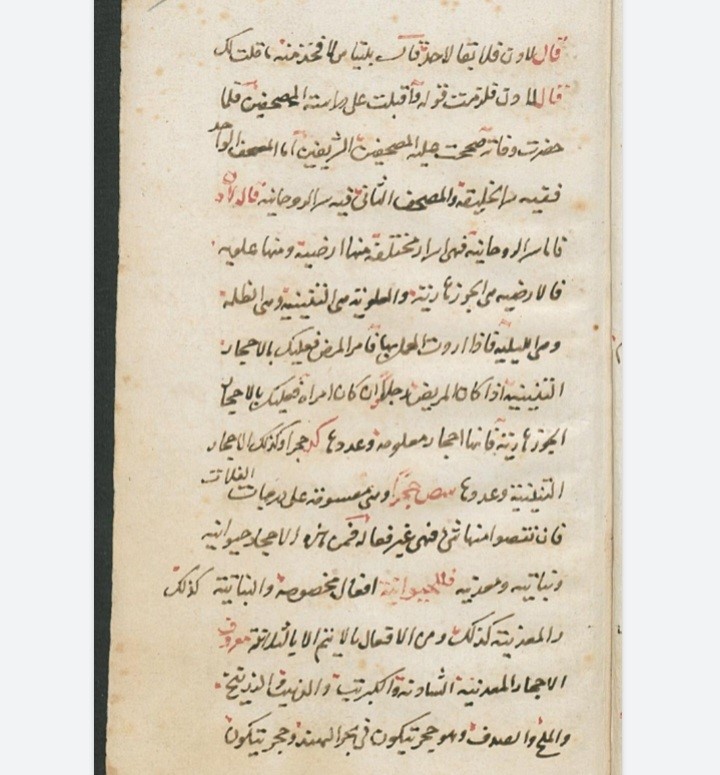 قال لاون فلا بقا لاحد قال بليناس لا فخذ منه ما قلت لك
قال لاون فلزمت قوله واقبلت على دراسته المصحفين فلما
حضرت وفاته صححت عليه المصحفين الشريفين اما المصحف الواحد
ففيه سر الخليقة والمصحف الثاني فيه سر الروحانية قال لاون
فاما سر الروحانية فهي اسرار مختلفة منها ارضية ومنها علوية
فالارضية هي الجوزهارية والعلوية هي التنينية وهي الظلمة
وهي الليلية فاذا اردت العمل بها فامر المرض فعليك بالاحجار
التنينية اذا كان المريض رجلا وان كان امراة فعليك بالاحجار
الجوزهارية فانها احجار معلومة وعددها حجرا وكذلك الاحجار
التنينية وعددها حجرا وهي مقسومة على درجات الفلك
فان نقصوا منها شي فهي غير فعالة فمن هذه الاحجار حيوانية
ونباتية ومعدنية فللحيوانية افعال مخصوصة والنباتية كذلك
والمعدنية كذلك ومن الافعال ما لا يتم الا بالثلاثة معروف
الاحجار المعدنية الشادنة والكبريت والذهب والزرنيخ
والملح والصدف وهو حجر يتكون في بحر الهند وحجر يتكون